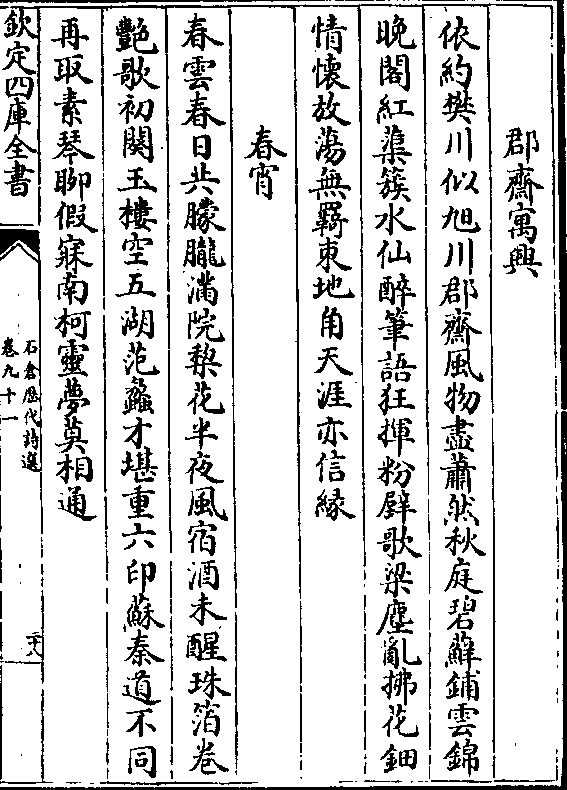 郡齋寓興
依約樊川似旭川郡齋風物盡蕭然秋庭碧蘚鋪雲錦
晚閣紅蕖簇水仙醉筆語狂揮粉壁歌梁塵亂拂花鈿
情懷放蕩無羈束地角天涯亦信緣
春宵
春雲春日共朦朧滿院梨花半夜風宿酒未醒珠箔卷
艶歌初闋玉樓空五湖范蠡才堪重六印蘇秦道不同
再取素琴聊假寐南柯靈夢莫相通
欽定四庫全書
石倉歷代詩選
卷九十一
二十八